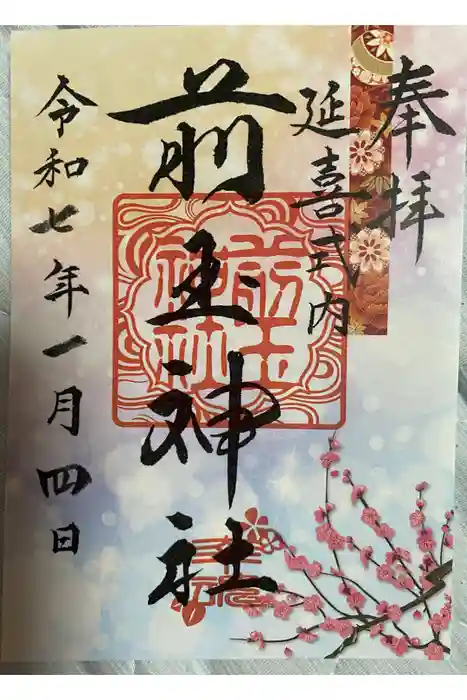 奉拝
延喜式内
前玉神社
令和七年一月四日
前玉
神社